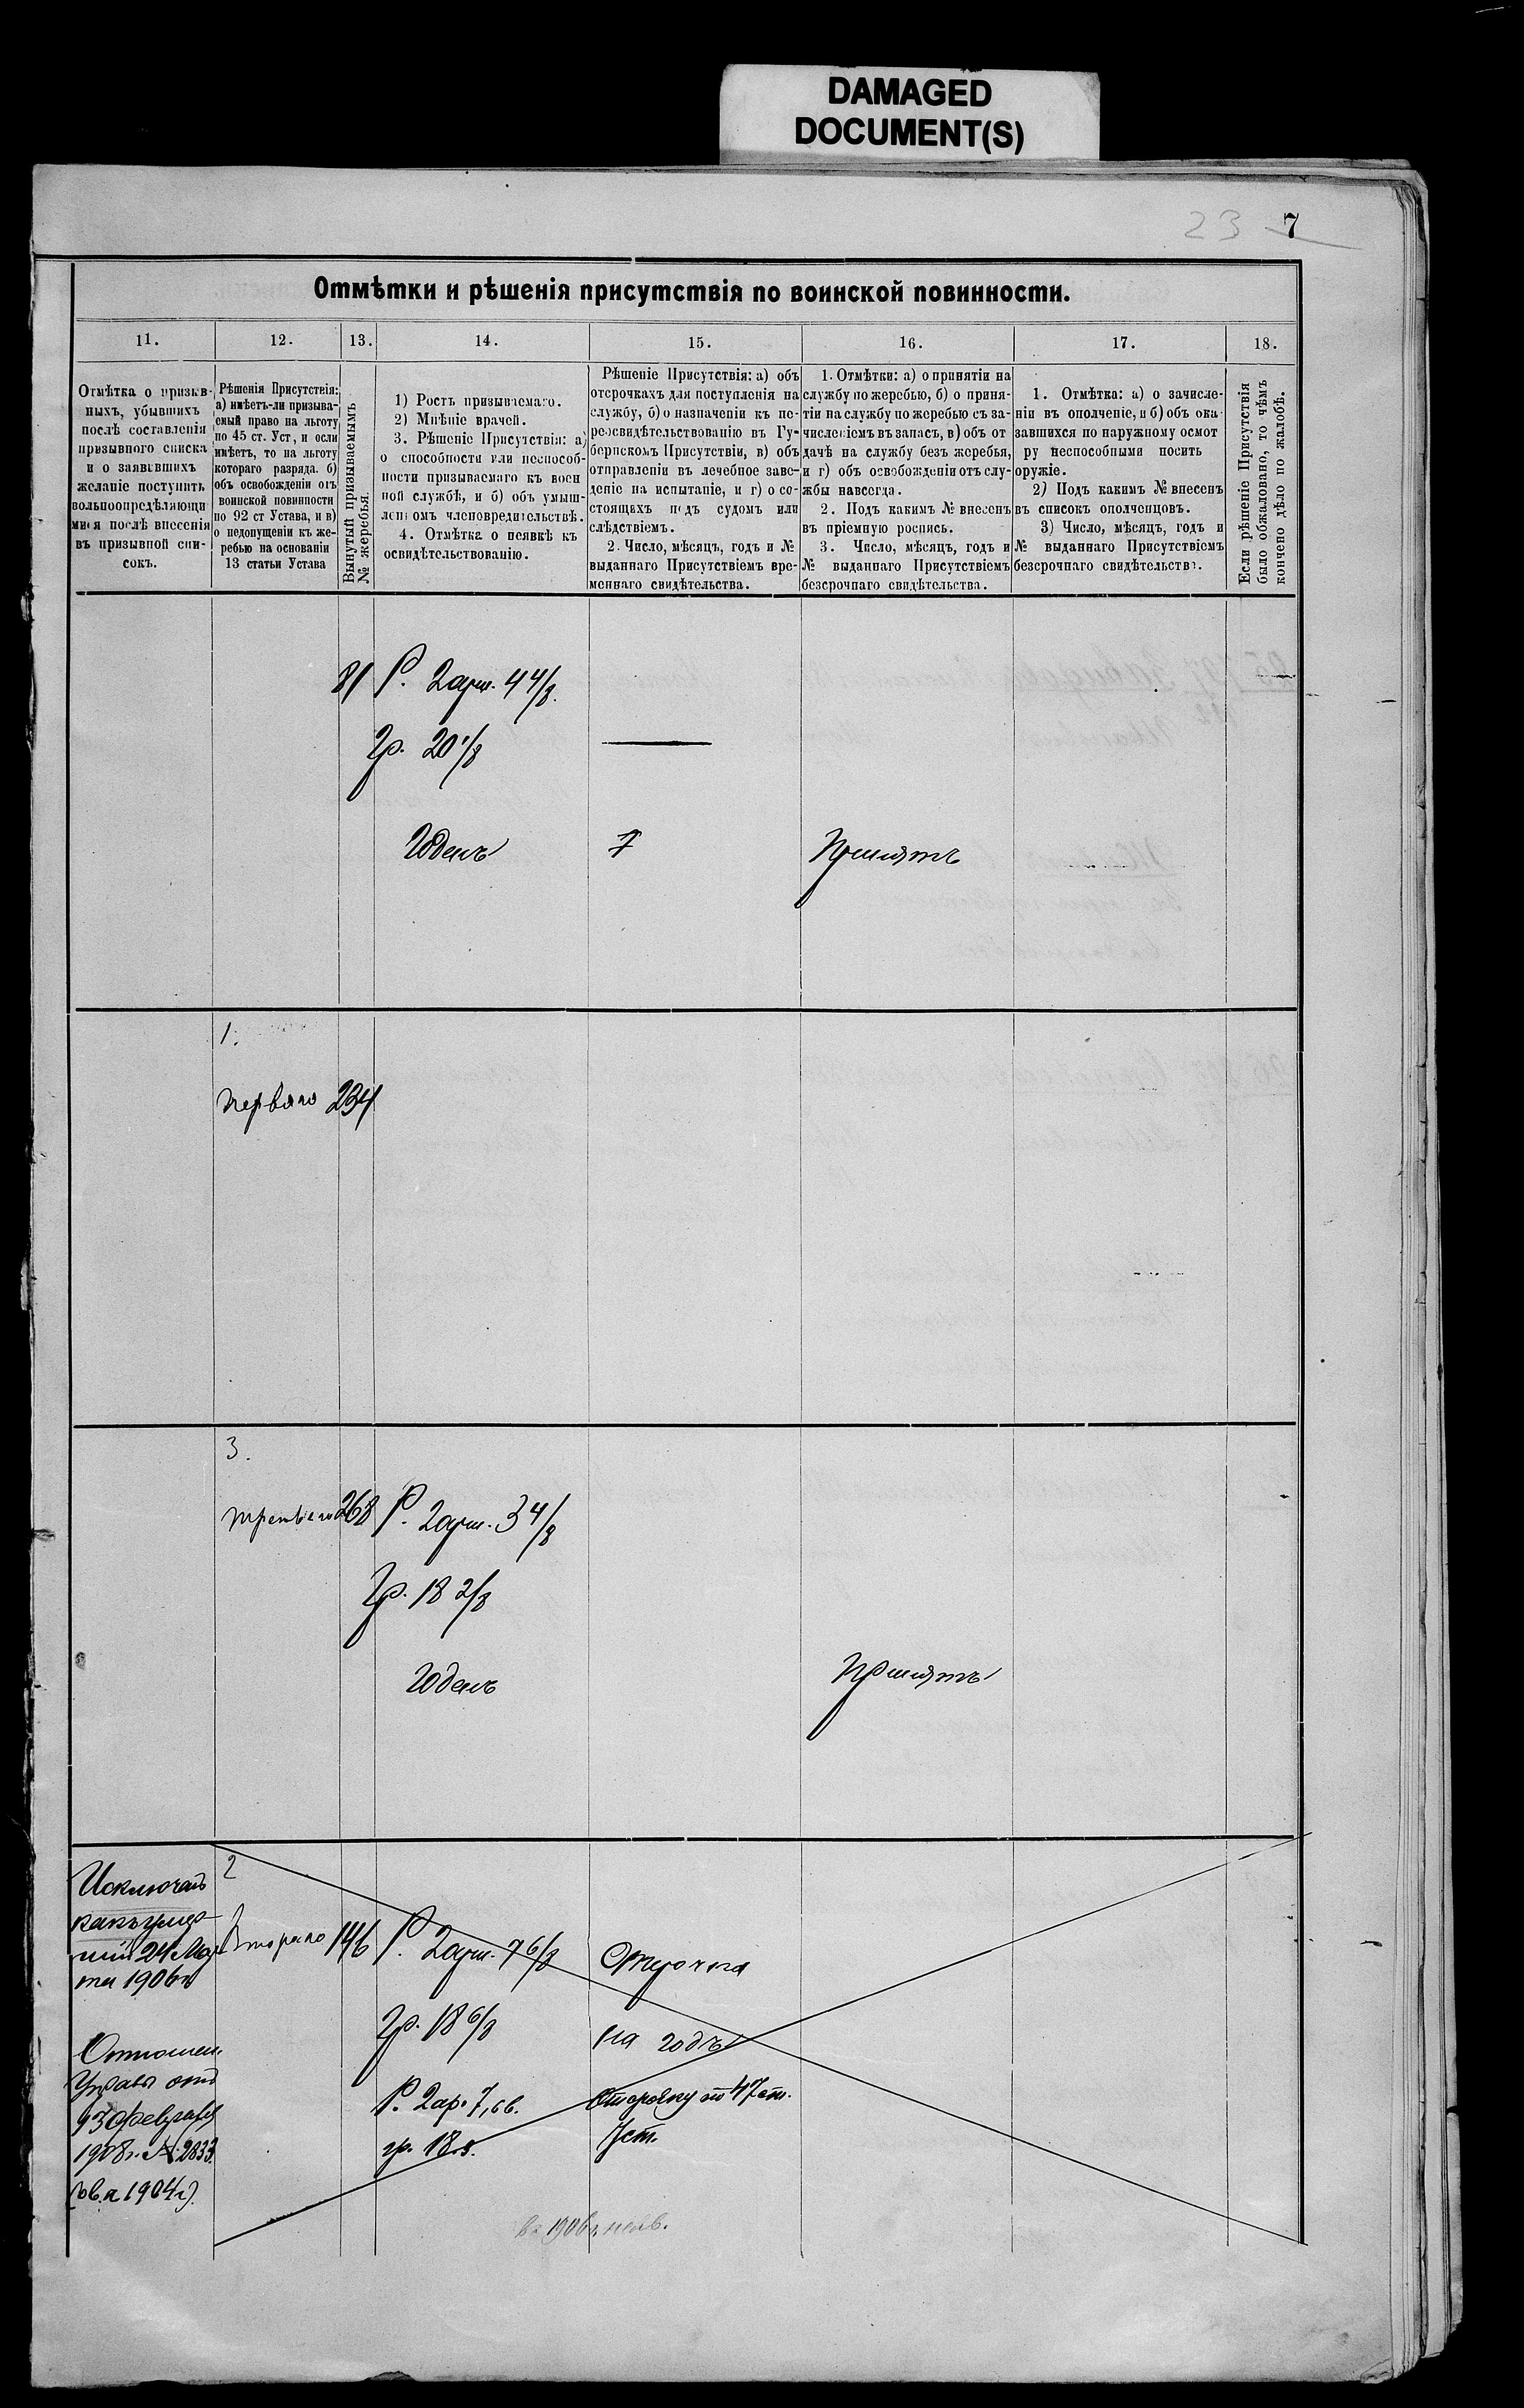 DAMAGED
DOCUMENT(S)
23 7
Отмѣтки и рѣшенія присутствія по воинской повинности.
11. 12. 13. 14. 15. 16. 17. 18.
Отмѣтка о призыв-
ныхъ, убывшихъ
послѣ составленія
призывного списка
и о заявившихъ
желаніе поступить
вольноопредѣляющи
мися послѣ внесенія
въ призывной спи-
сокъ.
Рѣшенія Присутствія:
а) имѣетъ-ли призыва-
емый право на льготу
по 45 ст. Уст, и если
имѣетъ, то на льготу
котораго разряда. б)
объ освобожденіи отъ
воинской повинности
по 92 ст Устава, и в)
о недопущеніи къ же-
ребью на основаніи
13 статьи Устава
Вынутый призываемымъ
№ жеребья.
1) Ростъ призываемаго.
2) Мнѣніе врачей.
3. Рѣшеніе Присутствія: а)
о способности или неспособ-
ности призываемаго къ воен
ной службѣ, и б) объ умыш-
ленномъ членовредительствѣ.
4. Отмѣтка о неявкѣ къ
освидѣтельствованію.
Рѣшеніе Присутствія: а) объ
отсрочкахъ для поступленія на
службу, б) о назначеніи къ пе-
реосвидѣтельствованію въ Гу-
бернскомъ Присутствіи, в) объ
отправленіи въ лечебное заве-
деніе на испытаніе, и г) о со-
стоящихъ подъ судомъ или
слѣдствіемъ.
2. Число, мѣсяцъ, годъ и №
выданнаго Присутствіемъ вре-
меннаго свидѣтельства.
1. Отмѣтки: а) о принятіи на
службу по жеребью, б) о приня-
тіи на службу по жеребью съ за-
численіемъ въ запасъ, в) объ от
дачѣ на службу безъ жеребья,
и г) объ освобожденіи отъ слу-
жбы навсегда.
2. Подъ какимъ № внесенъ
въ пріемную роспись.
3. Число, мѣсяцъ, годъ и
№ выданнаго Присутствіемъ
безсрочнаго свидѣтельства.
1. Отмѣтка: а) о зачисле-
ніи въ ополченіе, и б) объ ока
завшихся по наружному осмот
ру неспособными носить
оружіе.
2) Подъ какимъ № внесенъ
въ списокъ ополченцовъ.
3) Число, мѣсяцъ, годъ и
№ выданнаго Присутствіемъ
безсрочнаго свидѣтельства.
Если рѣшеніе Присутствія
было обжаловано, то чѣмъ
кончено дѣло по жалобѣ.
81 Р. 2 арш. 4 4/8.
Гр. 20 1/8
Годенъ Принятъ
1.
перваго 234
3.
третьяго 268 Р. 2 арш. 3 4/8
Гр. 18 2/8
Годенъ Принятъ
Исключенъ
24 Мар
та 1906 г.
Отношен.
Управы отъ
Февраля
1908 г. № 2833.
2
Второго 146 Р. 2 арш. 7 6/8
Гр. 18 6/8
Р. 2 ар. 7,
гр. 18.
Отсрочка
на годъ
47 ст.
Уст.